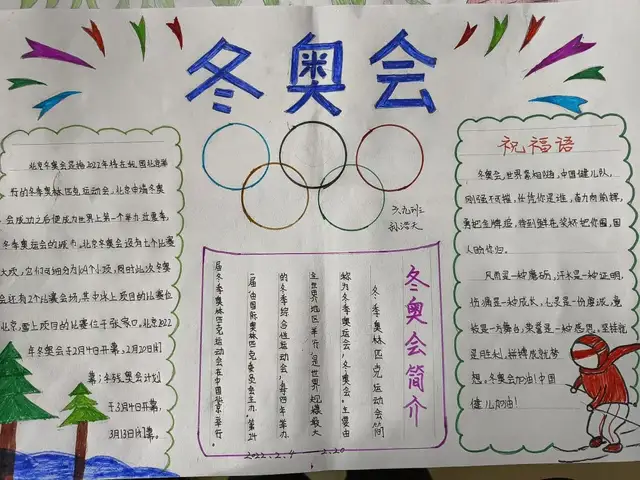 冬奥会
北京冬奥会是指2022年将在我国北京举
行的冬季奥林匹克运动会。北京申请冬奥
会成功之后便成为世界上第一个举办过夏季、
冬季奥运会的城市。北京冬奥会设有七个比赛
大项,它们可细分为
会还有2个比赛会场,其中冰上项目的比赛位
北京,雪上项目的比赛位于张家口,北京2022
年冬奥会于2月4日开幕,2月20日闭
幕;冬残奥会计划
于3月4日开幕,
3月13日闭幕。
六九班
冬奥会简介
冬季奥林匹克运动会简
称为冬季奥运会,冬奥会。主要由
全世界地区举行,是世界规模最大
的冬季综合性运动会,每四年举办
一届,由国际奥林匹克委员会主办。第24
届冬季奥林匹克运动会在中国北京举行。
2022.2.4 2.20
祝福语
冬奥会,世界高烟起,中国健儿队,
刚强不可摧。长凭你是谁,奋力向前挥,
勇把金牌后,待到鲜花笑杯把你围,国
人盼你归。
风雨是一种磨砺,汗水是一种证明,
伤痛是一种成长,
是一种荣誉是一种感恩,坚持就
是胜利,拼搏成就梦
想。冬奥会加油!中国
健儿加油!